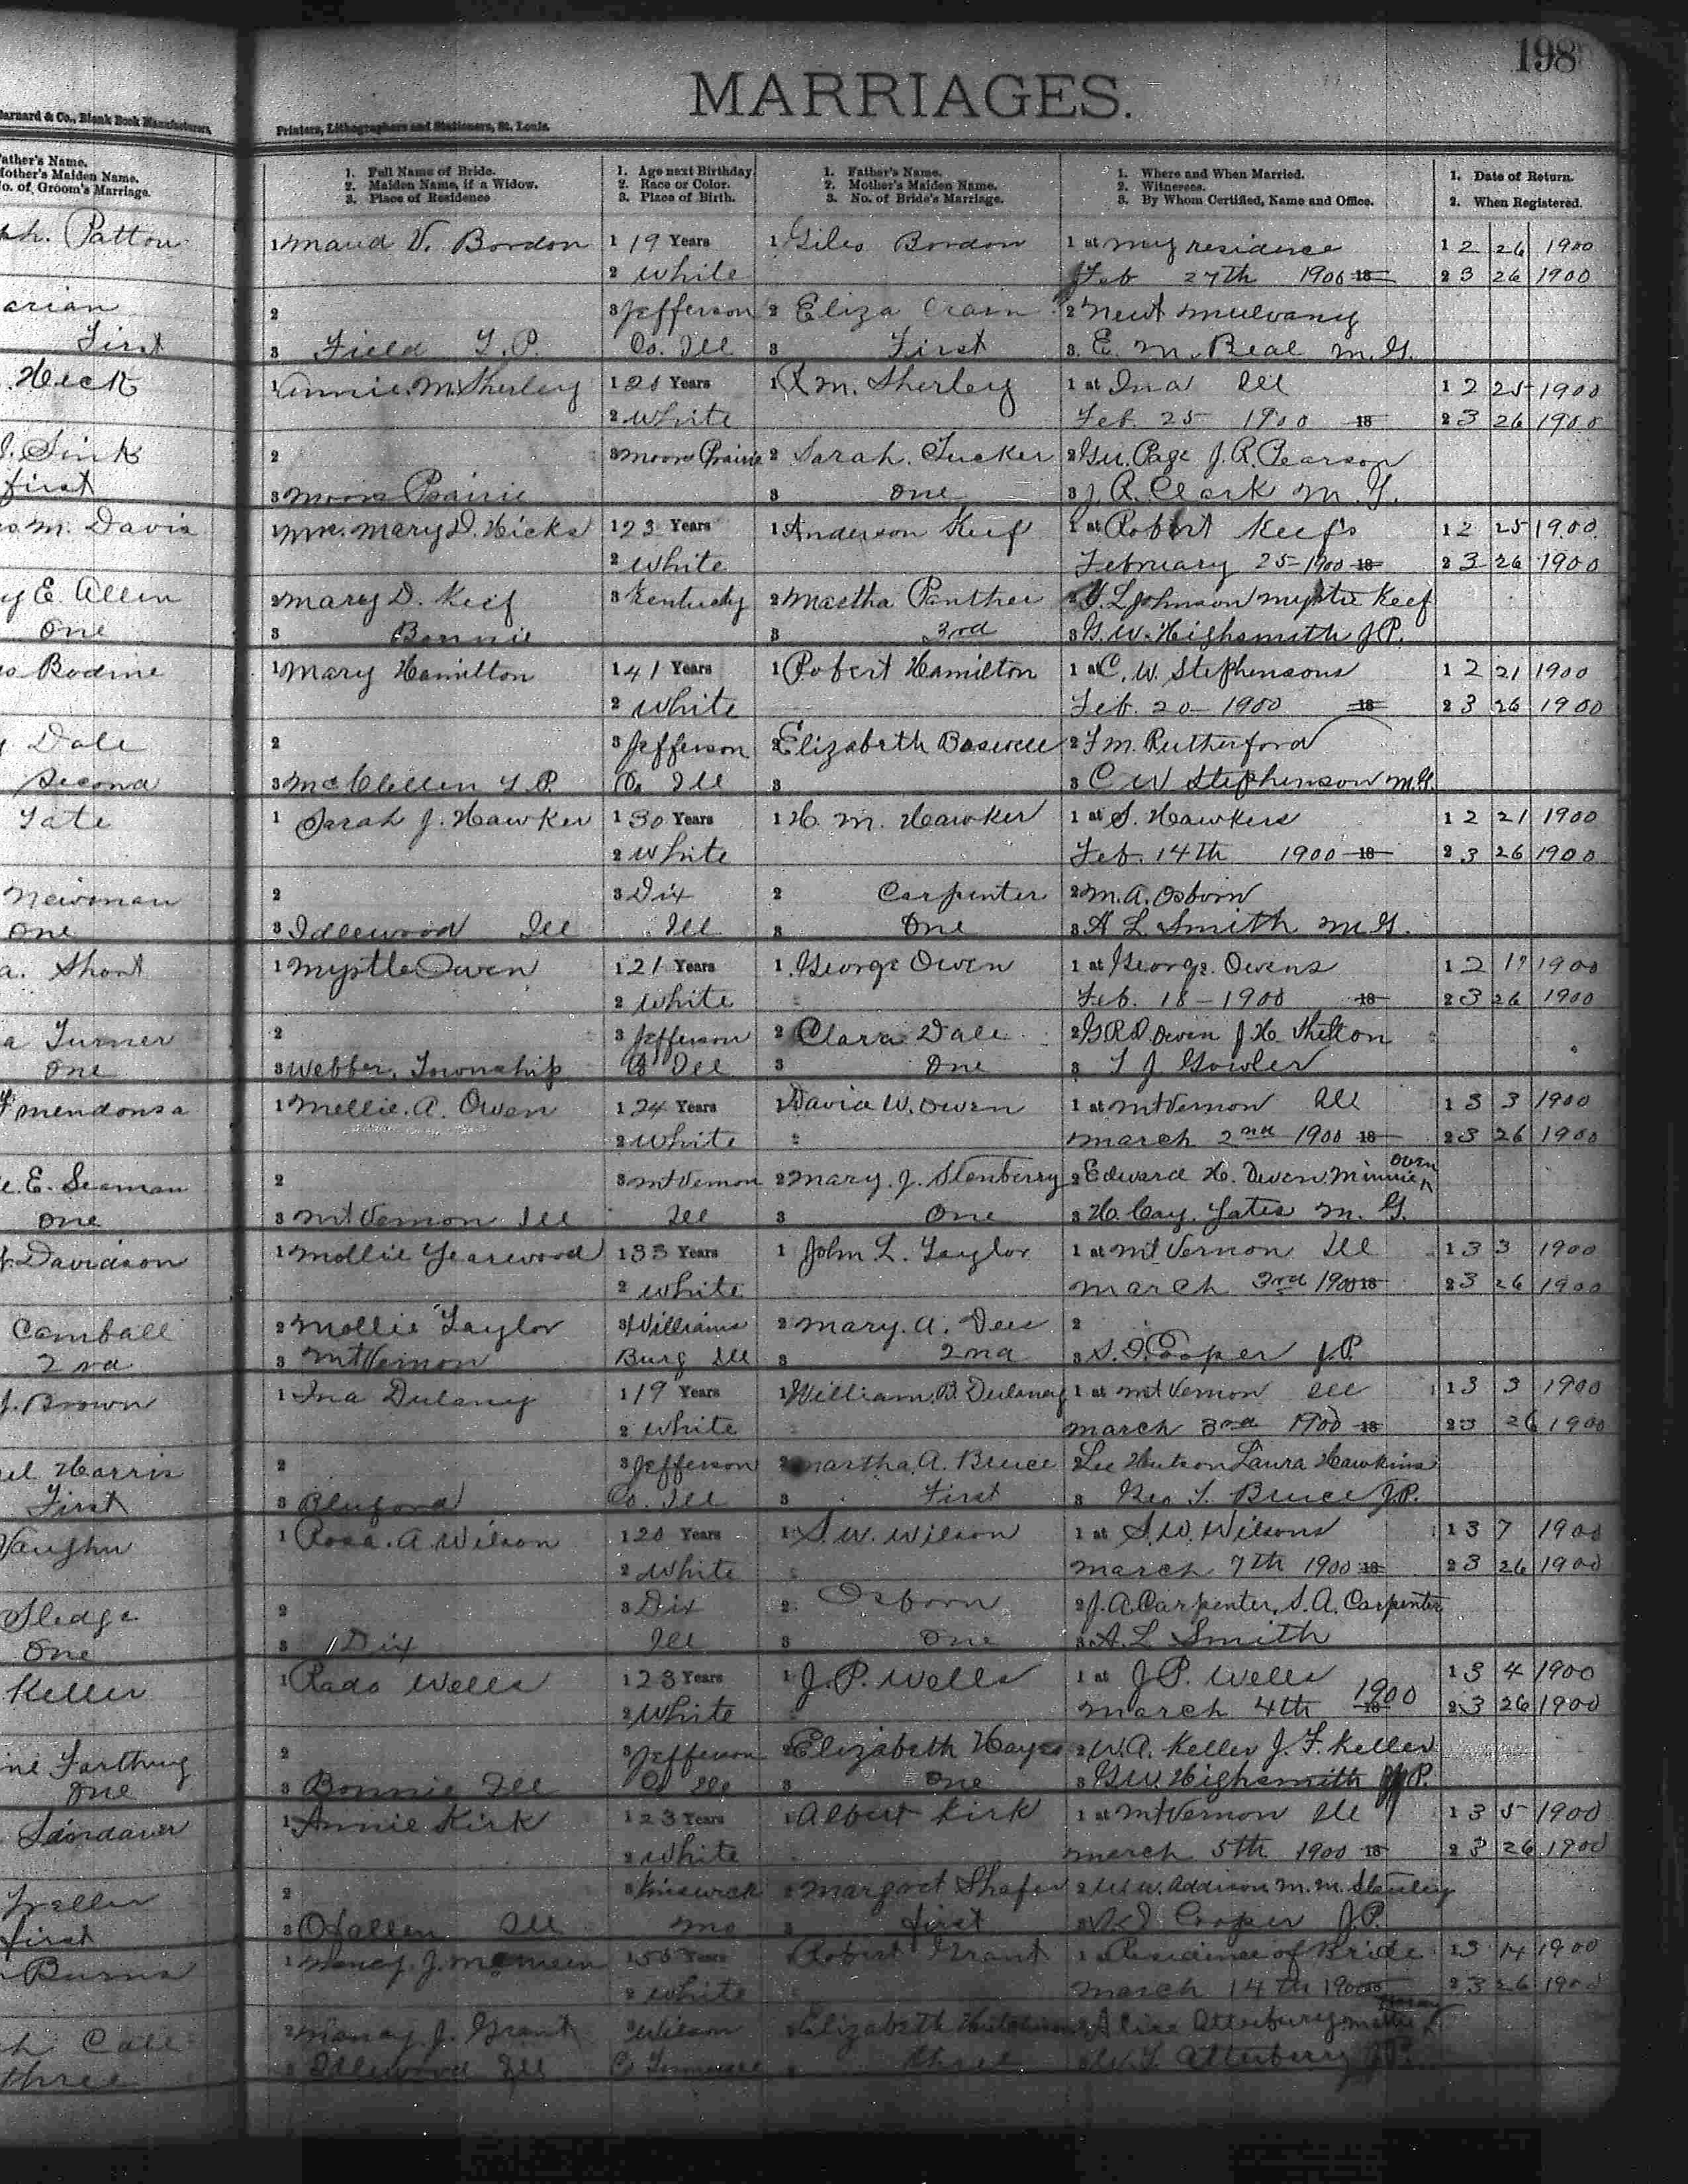 198
MARRIAGES.
Barnard & Co., Blank Book Manufacturers, Printers, Lithographers and Stationers, St. Louis.
Father's Name. 1. Full Name of Bride. 1. Age next Birthday. 1. Father's Name. 1. Where and When Married. 1. Date of Return.
Mother's Maiden Name. 2. Maiden Name, if a Widow. 2. Race or Color. 2. Mother's Maiden Name. 2. Witnesses. 2. When Registered.
No. of Groom's Marriage. 3. Place of Residence 3. Place of Birth. 3. No. of Bride's Marriage. 3. By Whom Certified, Name and Office.
Patton 1 Maud V. Bordon 1 19 Years 1 Giles Bordon 1 at my residence 1 2 26 1900
2 White Feb 27th 1900 18 2 3 26 1900
arian 2 3 Jefferson 2 Eliza Crain 2 Newt Mulvany
First 3 Field T.P. Co. Ill 3 First 3. E. M. Beal M.G.
Heck 1 Annie. M. Sherley 1 21 Years 1 R. M. Sherley 1 at Ina Ill 1 2 25 1900
2 White Feb. 25 1900 18 2 3 26 1900
Sink 2 3 Moors Prairie 2 Sarah. Tucker 2 Gu. Page J. R. Pearson
first 3 Moors Prairie 3 one 3 J. R. Clark M. G.
M. Davis 1 Mrs. Mary D. Hicks 1 23 Years 1 Anderson Keef 1 at Robert Keef's 1 2 25 1900
2 White February 25 1900 18 2 3 26 1900
y E. Allen 2 Mary D. Keef 3 Kentucky 2 Martha Panther 2 J. L Johnson Myrtie Keef
one 3 Bonnie 3 3rd 3 G. W. Highsmith J.P.
Bodine 1 Mary Hamilton 1 41 Years 1 Robert Hamilton 1 at C. W. Stephensons 1 2 21 1900
2 White Feb. 20 1900 18 2 3 26 1900
Dale 2 3 Jefferson 2 Elizabeth Boswell 2 F M. Rutherford
Second 3 McClellen T.P. Co Ill 3 3 C W Stephenson M.G.
Tate 1 Sarah J. Hawker 1 30 Years 1 H. M. Hawker 1 at S. Hawkers 1 2 21 1900
2 White Feb. 14th 1900 18 2 3 26 1900
Newman 2 3 Dix 2 Carpenter 2 M. A. Osborn
one 3 Idlewood Ill Ill 3 One 3 A L Smith M. G.
a. Short 1 Myrtle Owen 1 21 Years 1 George Owen 1 at George Owens 1 2 19 1900
2 White Feb. 18 - 1900 18 2 3 26 1900
Turner 2 3 Jefferson 2 Clara Dale 2 G R D Owen J H Shelton
One 3 Webber Township Co Ill 3 One 3 T J Gowler
Mendonsa 1 Mellie. A. Owen 1 24 Years 1 David W. Owen 1 at Mt Vernon Ill 1 3 3 1900
2 White March 2nd 1900 18 2 3 26 1900
E. Seaman 2 3 Mt Vernon 2 Mary. J. Stenberry 2 Edward H. Owen Minnie Owen
one 3 Mt Vernon Ill Ill 3 One 3 H. Cay. Yates M. G.
Davidson 1 Mollie Yearwood 1 33 Years 1 John L. Taylor 1 at Mt Vernon Ill 1 3 3 1900
2 White March 3rd 1900 18 2 3 26 1900
Camball 2 Mollie Taylor 3 Williams 2 Mary. A. Dees 2
2nd 3 Mt Vernon Burg Ill 3 2nd 3 S. Cooper J.P.
J. Brown 1 Ina Dulany 1 19 Years 1 William. B. Dulaney 1 at Mt Vernon Ill 1 3 3 1900
2 White March 3rd 1900 18 2 3 26 1900
Harris 2 3 Jefferson 2 Martha. A. Bruce 2 Lee Hutson Laura Hawkins
First 3 Bluford Co. Ill 3 First 3 Geo T. Bruce J.P.
Vaughn 1 Rosa. A. Wilson 1 20 Years 1 S. W. Wilson 1 at S. W. Wilsons 1 3 7 1900
2 White March 7th 1900 18 2 3 26 1900
Sledge 2 3 Dix 2 Osborn 2 J. A. Carpenter, S. A. Carpenter
One 3 Dix Ill 3 One 3 A. L Smith
Keller 1 Rado Wells 1 23 Years 1 J. P. Wells 1 at J.P. Wells 1 3 4 1900
2 White March 4th 1900 18 2 3 26 1900
Farthing 2 3 Jefferson 2 Elizabeth Hayes 2 W. A. Keller J. F. Keller
One 3 Bonnie Ill Co Ill 3 One 3 G.W. Highsmith J.P.
1 Annie Kirk 1 23 Years 1 Albert Kirk 1 at Mt Vernon Ill 1 3 5 1900
2 White March 5th 1900 18 2 3 26 1900
2 3 2 Margret Shafer 2 W. W. Addison M. M. Stanley
first 3 Ofallen Ill Mo 3 first 3 Cooper J.P.
Burns 1 Nancy. J. 1 Years 1 Robert Grant 1 at Residence of Bride 1 3 14 1900
2 White March 14th 1900 2 3 26 1900
Cale 2 Nancy J. Grant 3 Wilson 2 Elizabeth 2 Alice Atterbury Mattie
three 3 Idlewood Ill Co Tennessee 3 three 3 W. T. Atterberry J.P.